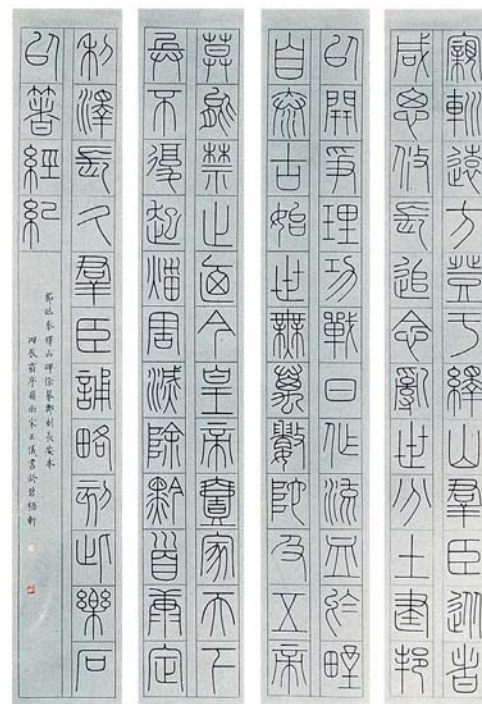 親巡遠方登于繹山羣臣從者
咸思攸長追念亂世分土建邦
以開爭理功戰日作流血於野
自泰古始世無萬數陀及五帝
莫能禁止廼今皇帝壹家天下
兵不復起災害滅除黔首康定
利澤長久羣臣誦略刻此樂石
以著經紀
節臨秦繹山碑徐摹鄭刻長安本
丙辰霜序嶺南宋玉儀書於碧梧軒